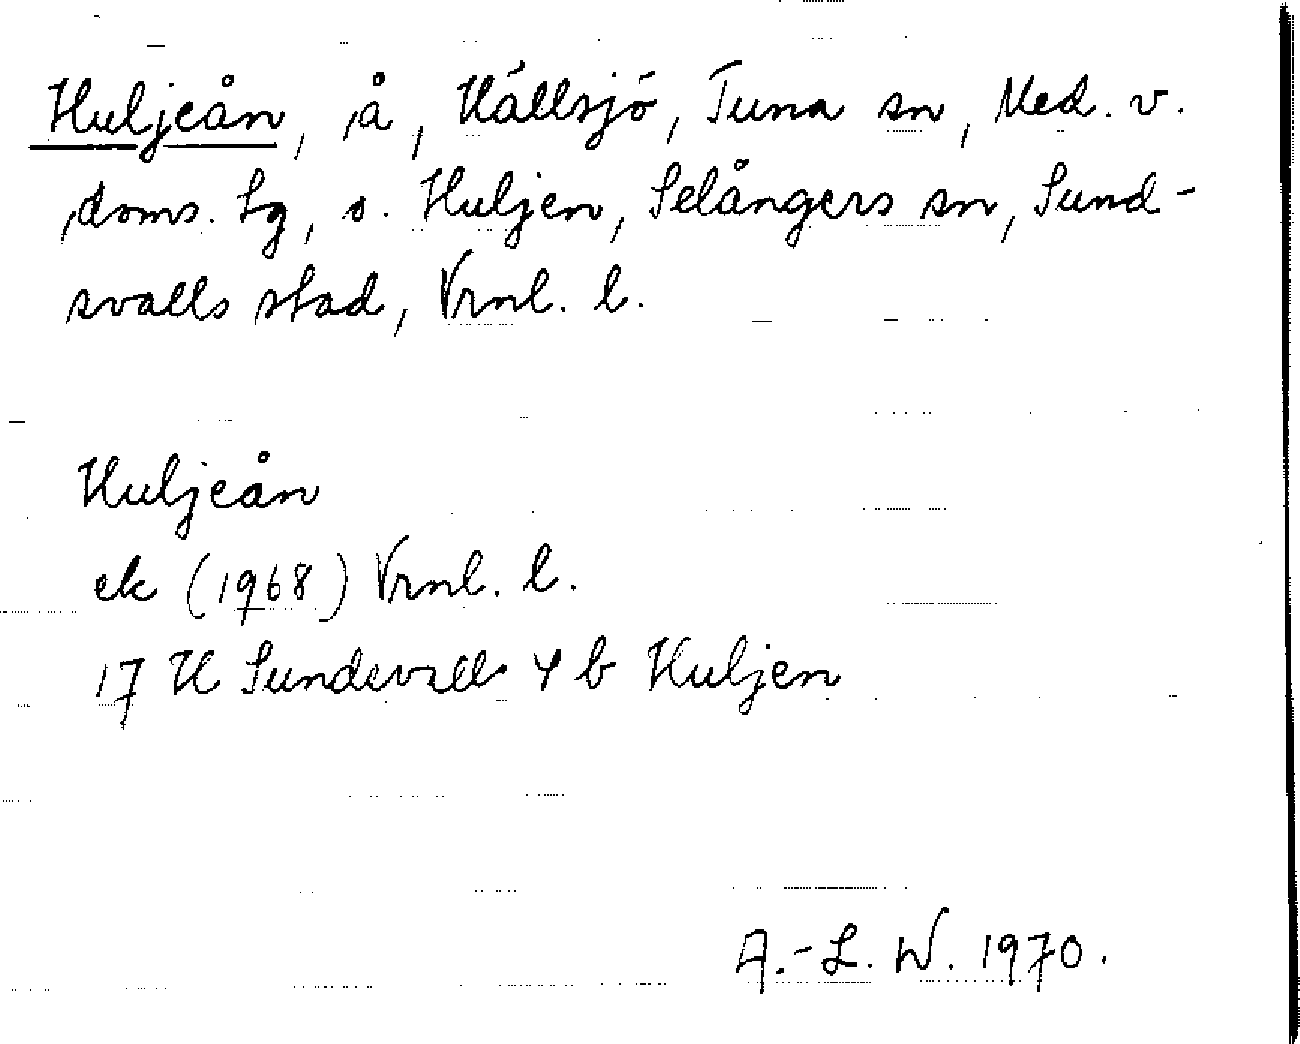 Huljeån, å, Hällsjö, Tuna sn, Med. v.
doms. Lg, o. Huljen, Selångers sn, Sund-
svalls stad, Vrnl. l.
Huljeån
ek (1968) Vrnl. l.
17 H Sundsvall 4 b Huljen
A.-L. W. 1970.